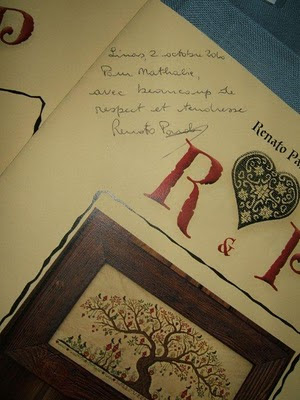 Limas, 2 octobre 2010
Pour Nathalie,
avec beaucoup de
respect et tendresse
Renato Parolin
Renato Pa
R
& P
P